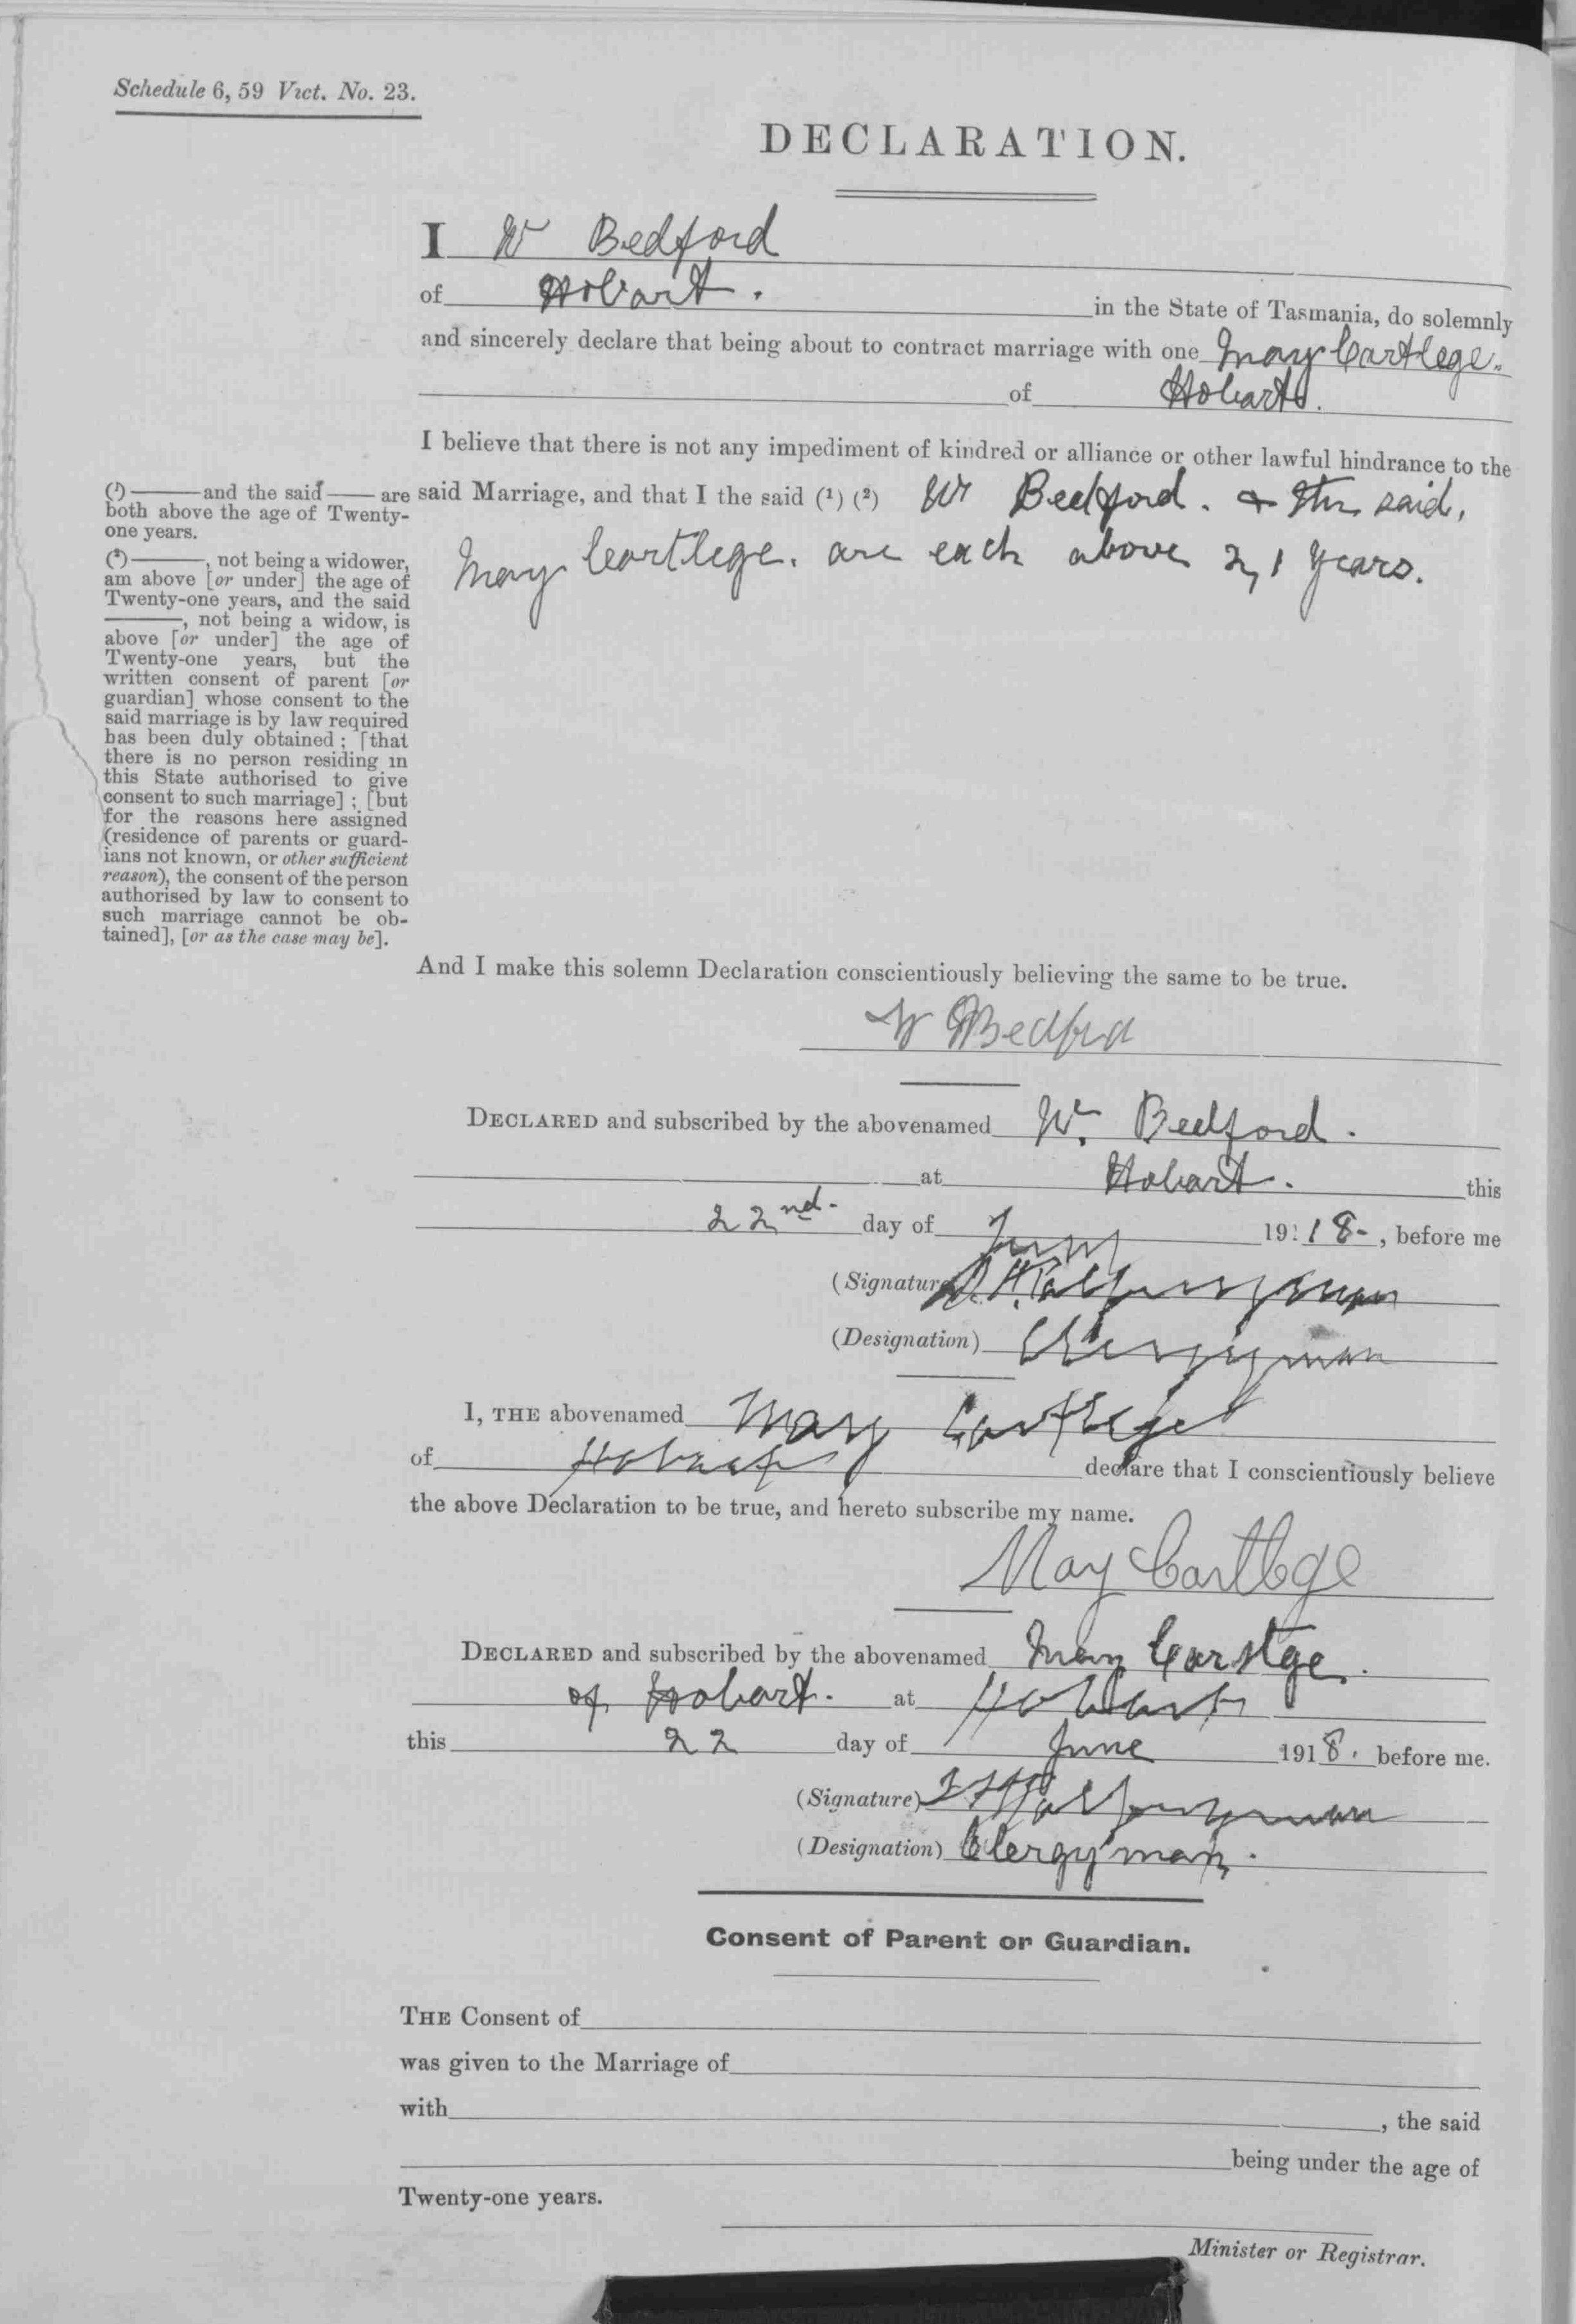 Schedule 6, 59 Vict. No. 23.
DECLARATION.
I W Bedford
of Hobart. in the State of Tasmania, do solemnly
and sincerely declare that being about to contract marriage with one May Cartlege.
of Hobart.
I believe that there is not any impediment of kindred or alliance or other lawful hindrance to the
said Marriage, and that I the said (1) (2) W Bedford. & the said,
May Cartlege. are each above 21 years.
(1) ——— and the said —— are
both above the age of Twenty-
one years.
(2) ———, not being a widower,
am above [or under] the age of
Twenty-one years, and the said
———, not being a widow, is
above [or under] the age of
Twenty-one years, but the
written consent of parent [or
guardian] whose consent to the
said marriage is by law required
has been duly obtained; [that
there is no person residing in
this State authorised to give
consent to such marriage]; [but
for the reasons here assigned
(residence of parents or guard-
ians not known, or other sufficient
reason), the consent of the person
authorised by law to consent to
such marriage cannot be ob-
tained], [or as the case may be].
And I make this solemn Declaration conscientiously believing the same to be true.
W Bedford
DECLARED and subscribed by the abovenamed W. Bedford.
at Hobart. this
22nd. day of 1918-, before me
(Signature)
(Designation) Clergyman
I, THE abovenamed May Cartlege
of Hobart declare that I conscientiously believe
the above Declaration to be true, and hereto subscribe my name.
May Cartlege
DECLARED and subscribed by the abovenamed May
of Hobart. at Hobart
this 22 day of June 1918. before me.
(Signature)
(Designation) Clergyman.
Consent of Parent or Guardian.
THE Consent of
was given to the Marriage of
with , the said
being under the age of
Twenty-one years.
Minister or Registrar.